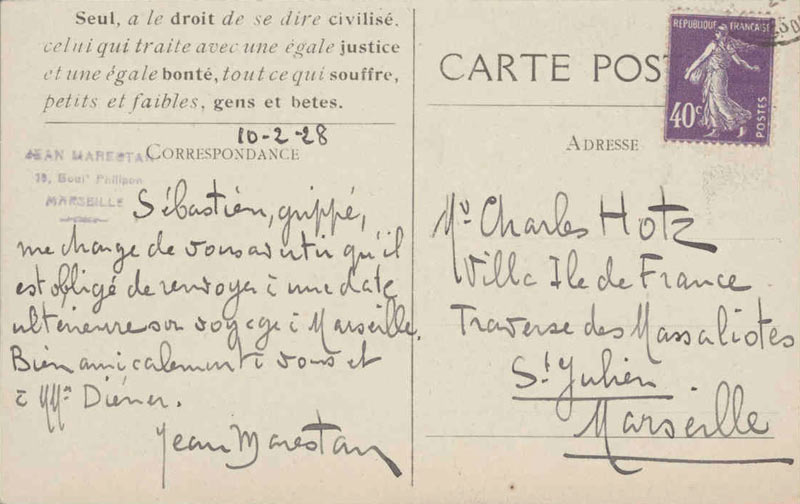 Seul, a le droit de se dire civilisé,
celui qui traite avec une égale justice
et une égale bonté, tout ce qui souffre,
petits et faibles, gens et betes.
10-2-28
CORRESPONDANCE
JEAN MARESTAN
Boulᵗ Philipon
MARSEILLE
Sébastien, grippé,
me charge de vous avertir qu'il
est obligé de renvoyer à une date
ultérieure son voyage à Marseille.
Bien amicalement à vous et
à Mᵐᵉ Diéner.
Jean Marestan
CARTE POST
RÉPUBLIQUE FRANÇAISE
40ᶜ
POSTES
ADRESSE
Mʳ Charles Hotz
Villa Ile de France
Traverse des Massaliotes
Sᵗ Julien
Marseille